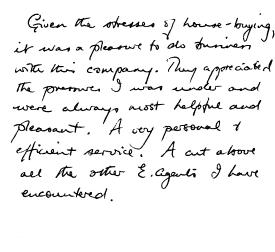 Given the stresses of house-buying,
it was a pleasure to do business
with this company. They appreciated
the pressures I was under and
were always most helpful and
pleasant. A very personal &
efficient service. A cut above
all the other E. Agents I have
encountered.